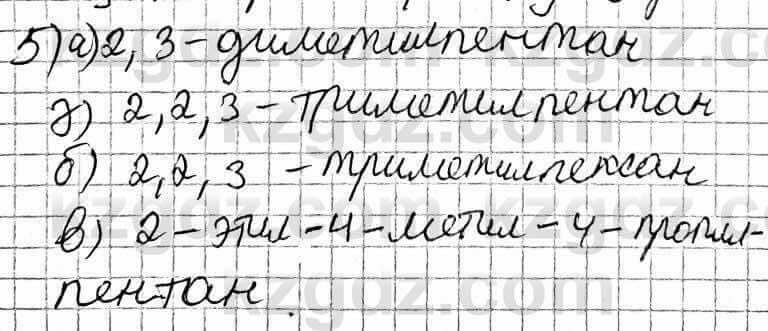 5) а) 2, 3 - диметилпентан
г) 2, 2, 3 - триметилпентан
б) 2, 2, 3 - триметилгексан
в) 2 - этил - 4 - метил - 4 - пропил-
пентан.